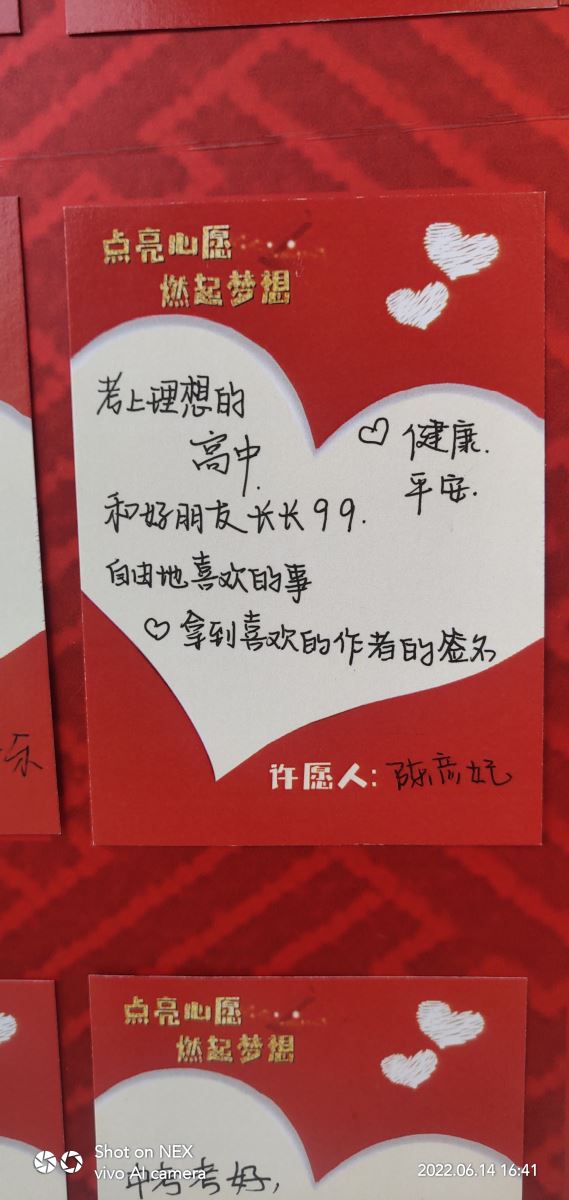 点亮心愿
燃起梦想
考上理想的
高中.
♡ 健康.
平安.
和好朋友长长99.
自由地喜欢的事
♡ 拿到喜欢的作者的签名
许愿人:
乐
点亮心愿
燃起梦想
中考考好,
Shot on NEX
vivo AI camera
2022.06.14 16:41